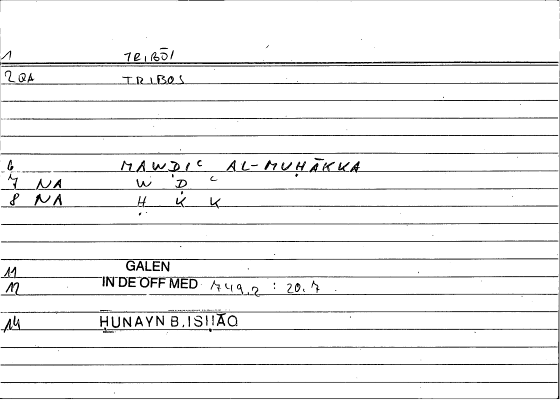 1 TRIBŌI
2 QA TRIBOS
6 MAWḌIʿ AL-MUḤĀKKA
7 NA W Ḍ ʿ
8 NA Ḥ K K
11 GALEN
12 IN DE OFF MED 749.2 : 20.7
14 ḤUNAYN B. ISḤĀQ